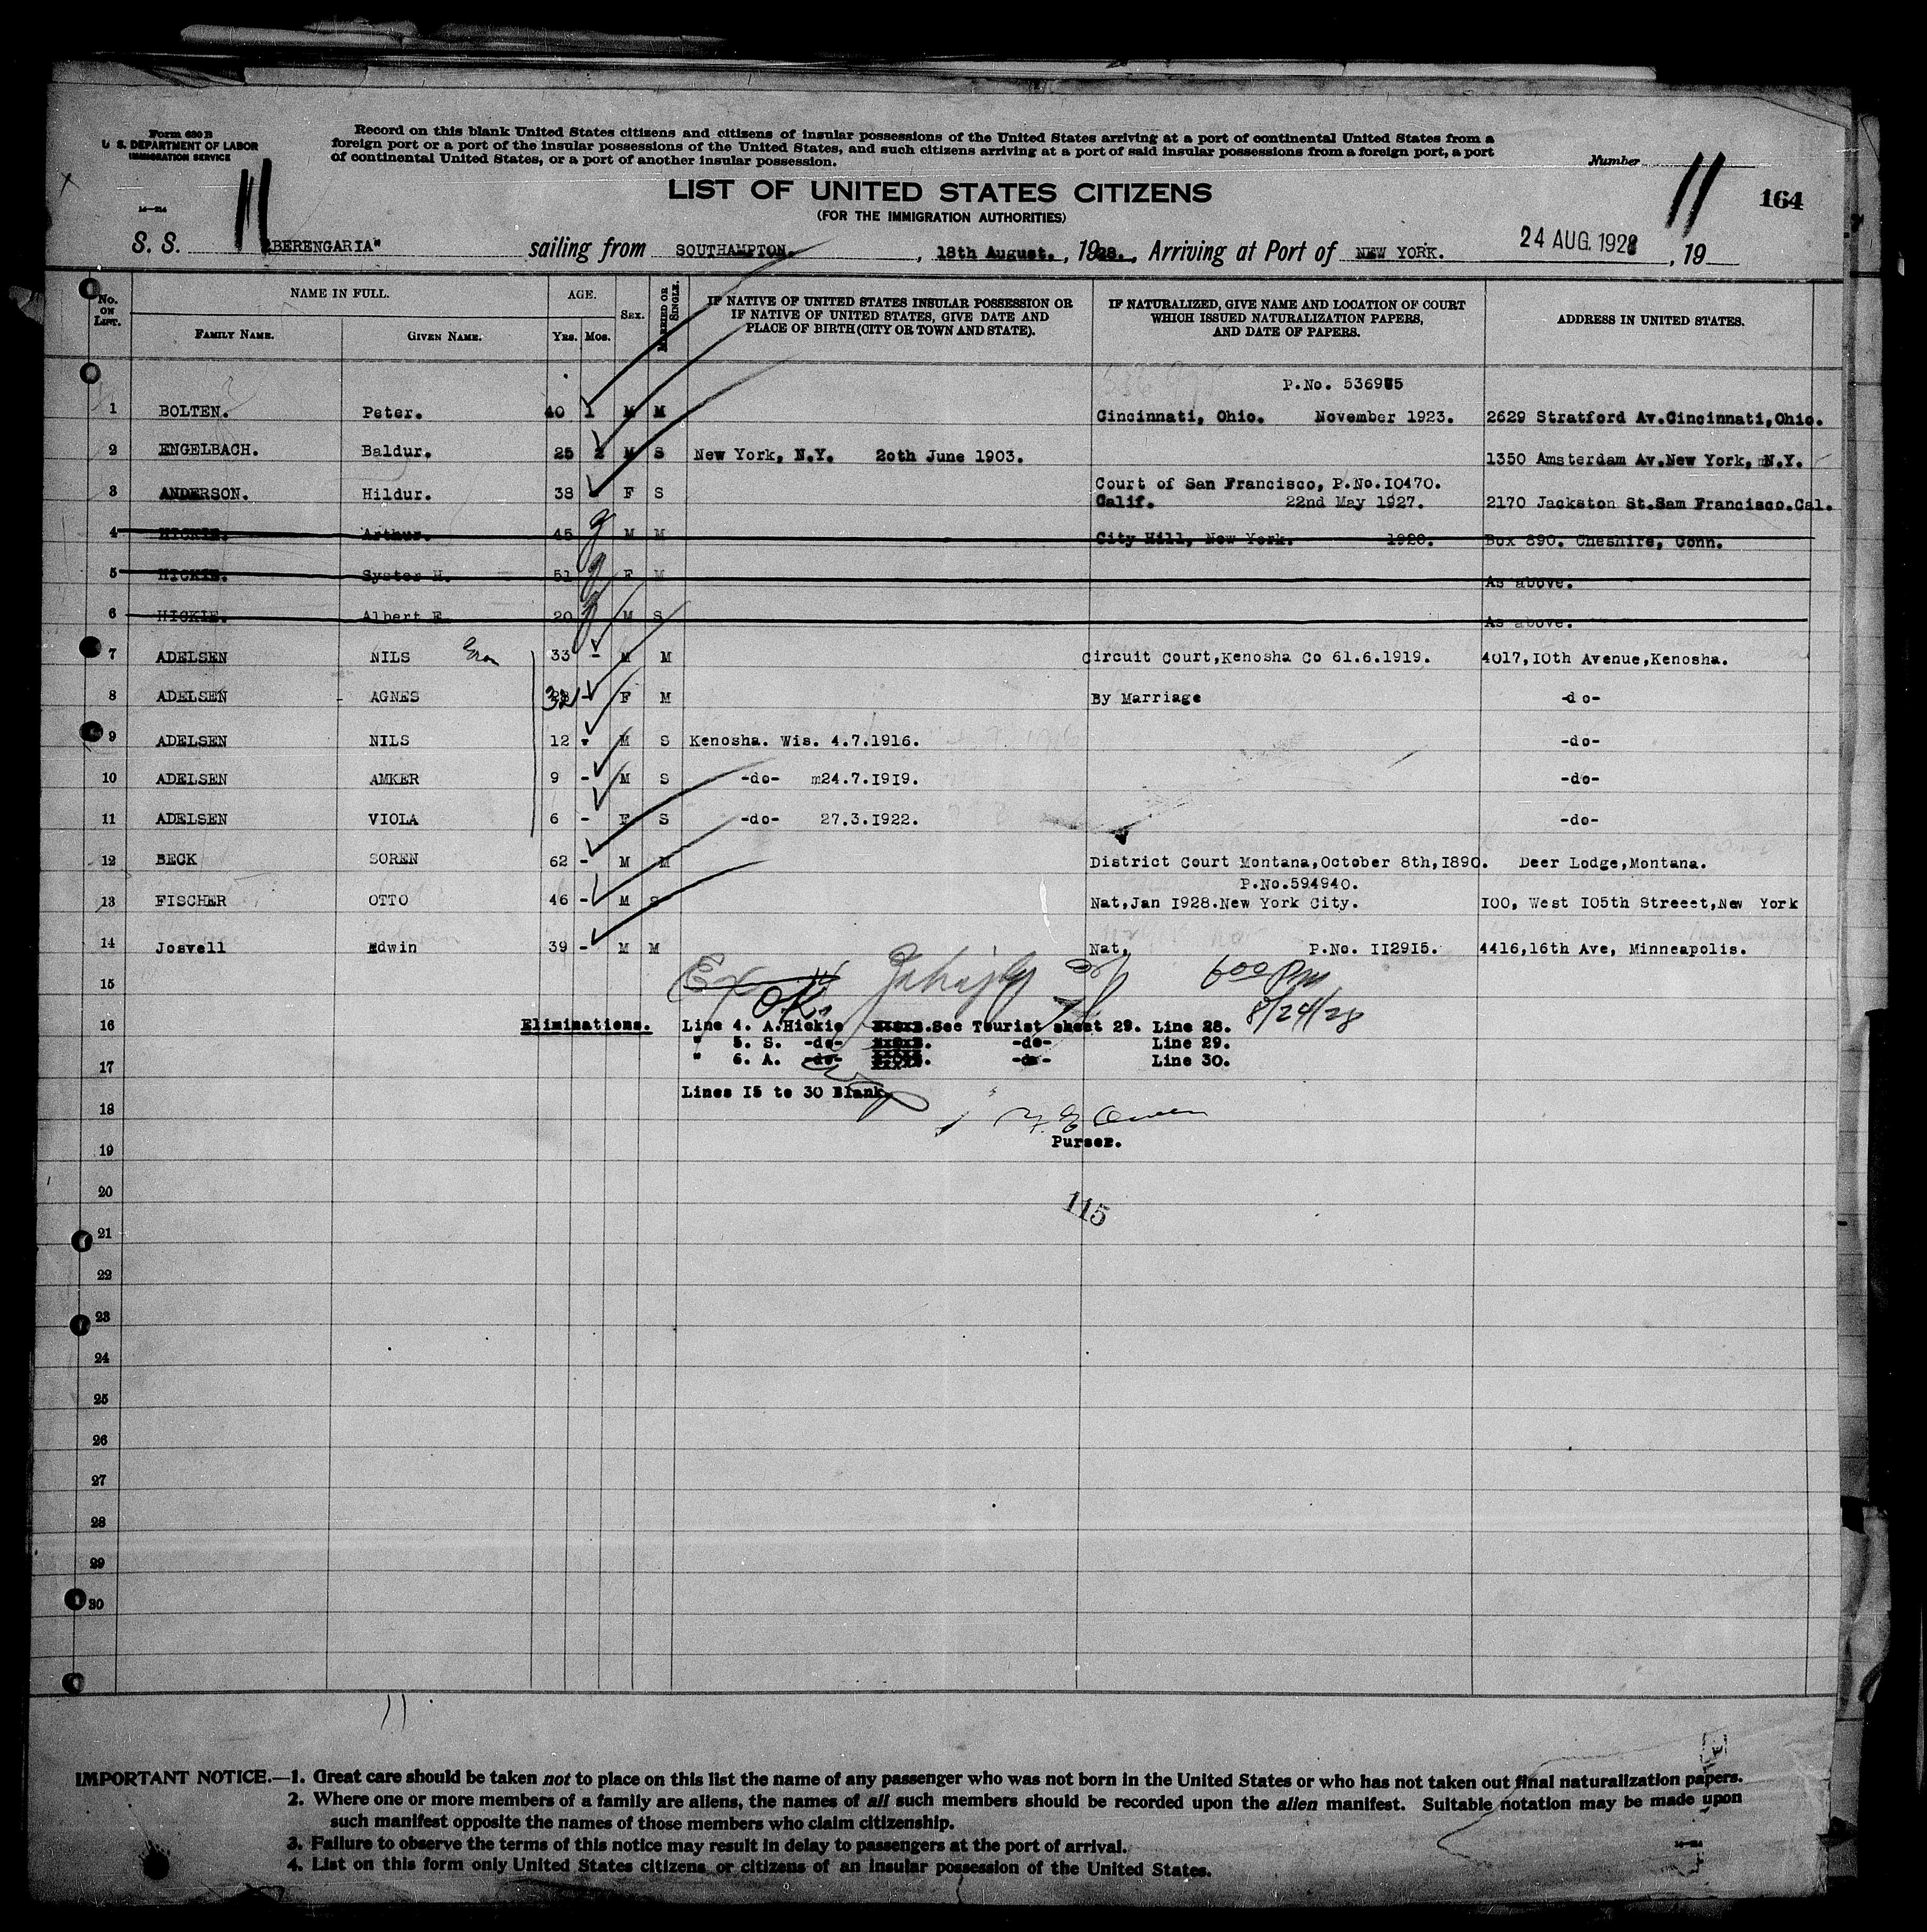 Form 630 B
U. S. DEPARTMENT OF LABOR
IMMIGRATION SERVICE
Record on this blank United States citizens and citizens of insular possessions of the United States arriving at a port of continental United States from a
foreign port or a port of the insular possessions of the United States, and such citizens arriving at a port of said insular possessions from a foreign port, a port
of continental United States, or a port of another insular possession.
Number
11
11
164
LIST OF UNITED STATES CITIZENS
(FOR THE IMMIGRATION AUTHORITIES)
S. S. "BERENGARIA" sailing from SOUTHAMPTON. , 18th August. , 1928. , Arriving at Port of NEW YORK. 24 AUG. 1928 , 19
No. ON LIST.
NAME IN FULL.
AGE.
SEX.
MARRIED OR SINGLE.
IF NATIVE OF UNITED STATES INSULAR POSSESSION OR
IF NATIVE OF UNITED STATES, GIVE DATE AND
PLACE OF BIRTH (CITY OR TOWN AND STATE).
IF NATURALIZED, GIVE NAME AND LOCATION OF COURT
WHICH ISSUED NATURALIZATION PAPERS,
AND DATE OF PAPERS.
ADDRESS IN UNITED STATES.
FAMILY NAME. GIVEN NAME. YRS. MOS.
P.No. 536985
1 BOLTEN. Peter. 40 1 M M Cincinnati, Ohio. November 1923. 2629 Stratford Av.Cincinnati,Ohio.
2 ENGELBACH. Baldur. 25 2 M S New York, N.Y. 20th June 1903. 1350 Amsterdam Av.New York, N.Y.
3 ANDERSON. Hildur. 38 F S Court of San Francisco, P.No.I0470.
Calif. 22nd May 1927. 2170 Jackston St.Sam Francisco.Cal.
4 HICKIE. Arthur. 45 M M City Hill, New York. 1920. Box 890. Cheshire, Conn.
5 HICKIE. Syster H. 51 F M As above.
6 HICKIE. Albert E. 20 M S As above.
7 ADELSEN NILS 33 - M M Circuit Court,Kenosha Co 61.6.1919. 4017,I0th Avenue,Kenosha.
8 ADELSEN AGNES 32 - F M By Marriage -do-
9 ADELSEN NILS 12 - M S Kenosha. Wis. 4.7.1916. -do-
10 ADELSEN AMKER 9 - M S -do- m24.7.I9I9. -do-
11 ADELSEN VIOLA 6 - F S -do- 27.3.I922. -do-
12 BECK SOREN 62 - M M District Court Montana,October 8th,I890. Deer Lodge,Montana.
P.No.594940.
13 FISCHER OTTO 46 - M S Nat,Jan I928.New York City. I00, West I05th Streeet,New York
14 Josvell Edwin 39 - M M Nat, P.No. II2915. 4416,16th Ave, Minneapolis.
15
OK. 600 Pm
8/24/28
16 Eliminations. Line 4. A.Hickie See Tourist sheet 29. Line 28.
" 5. S. -do- -do- Line 29.
" 6. A. -do- -do- Line 30.
17
Lines I5 to 30 Blank.
18
Purser.
19
20
115
21
22
23
24
25
26
27
28
29
30
11
IMPORTANT NOTICE.—1. Great care should be taken not to place on this list the name of any passenger who was not born in the United States or who has not taken out final naturalization papers.
2. Where one or more members of a family are aliens, the names of all such members should be recorded upon the alien manifest. Suitable notation may be made upon
such manifest opposite the names of those members who claim citizenship.
3. Failure to observe the terms of this notice may result in delay to passengers at the port of arrival.
4. List on this form only United States citizens or citizens of an insular possession of the United States.